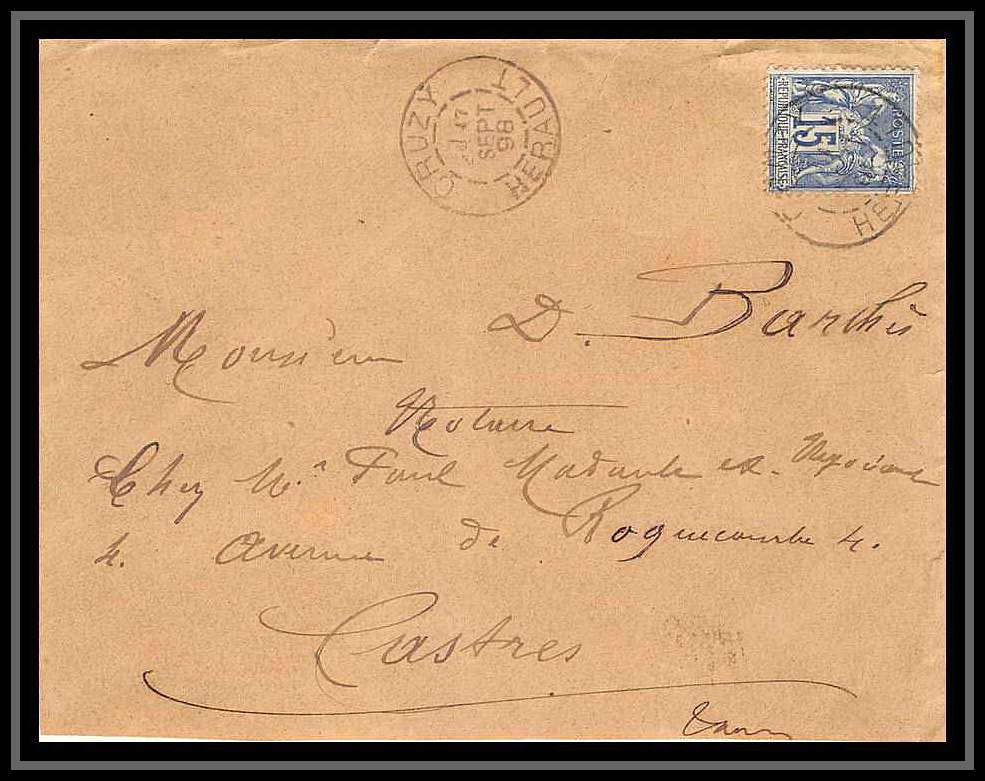 CRUZY
HERAULT
17
SEPT
98
REPUBLIQUE FRANCAISE
15
POSTE
HER
Monsieur D. Barthès
Notaire
Chez Mr Paul ex. Negociant
4. Avenue de Roquecourbe 4.
Castres
Tarn